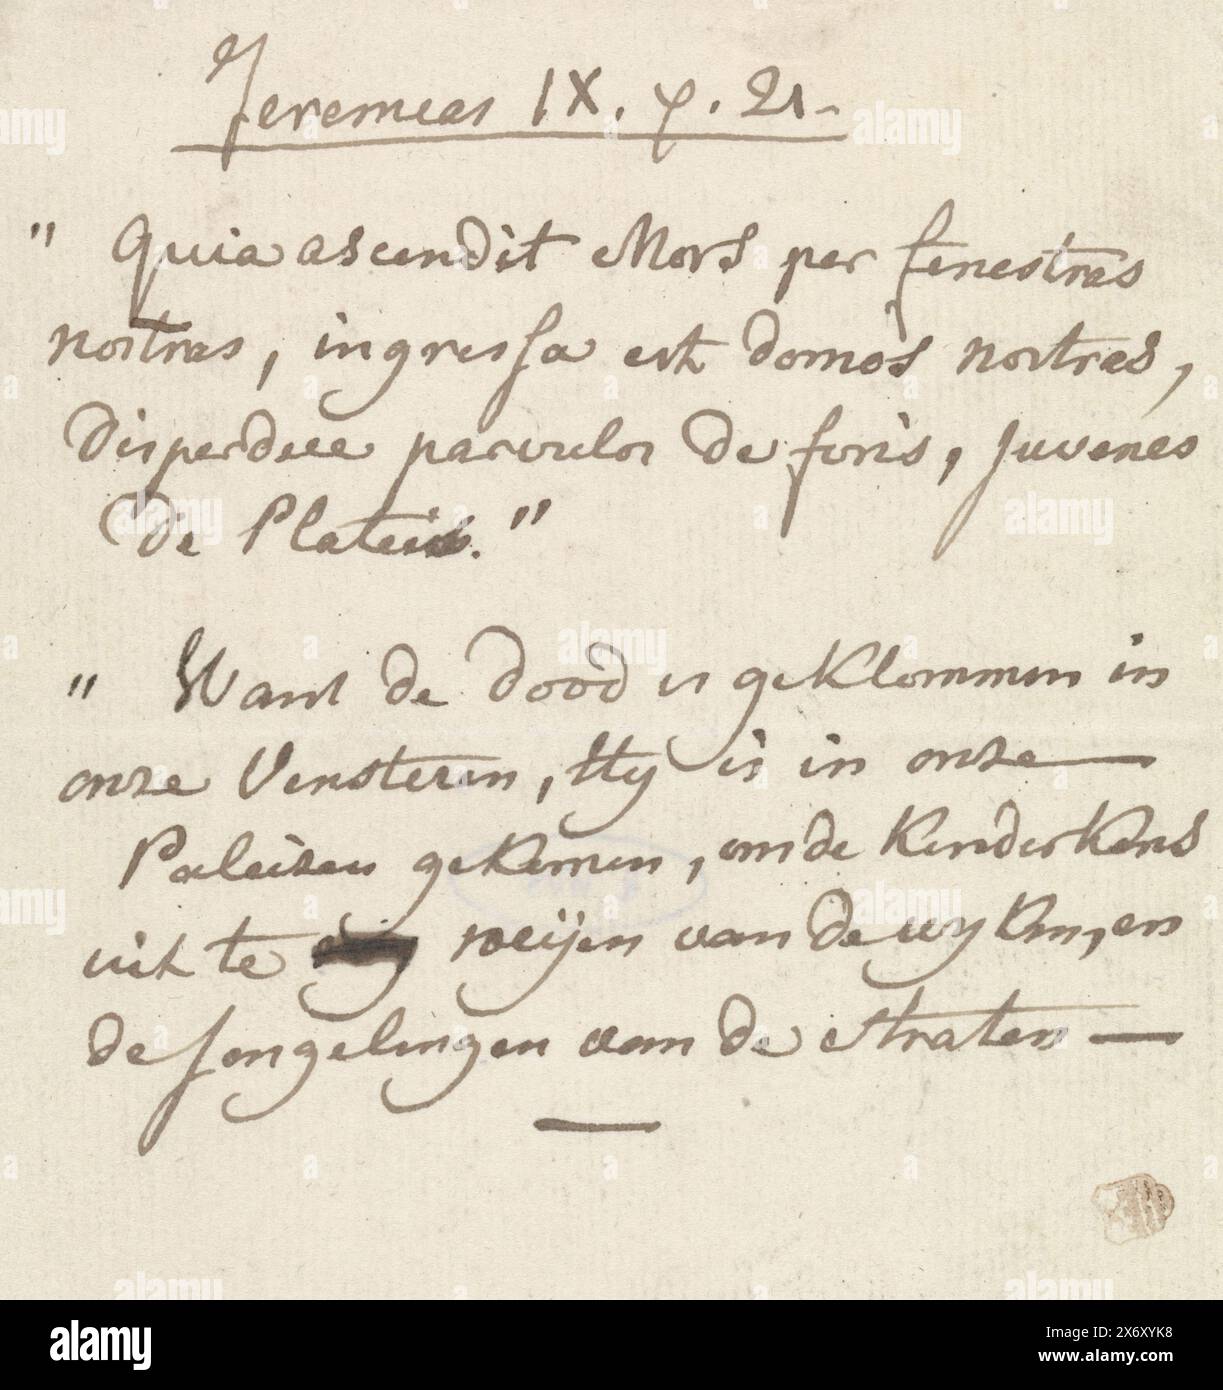 Jeremias IX. v. 21.
" Quia ascendit Mors per fenestras
nostras, ingressa est domos nostras,
Disperdere parvulos de foris, Juvenes
de Plateis. "
" Want de dood is geklommen in
onze Vensteren, Hy is in onze —
Paleizen gekomen, om de Kinderkens
uit te roeijen van de wyken, en
de Jongelingen van de Straten —
alamy
Image ID: 2X6XYK8
www.alamy.com